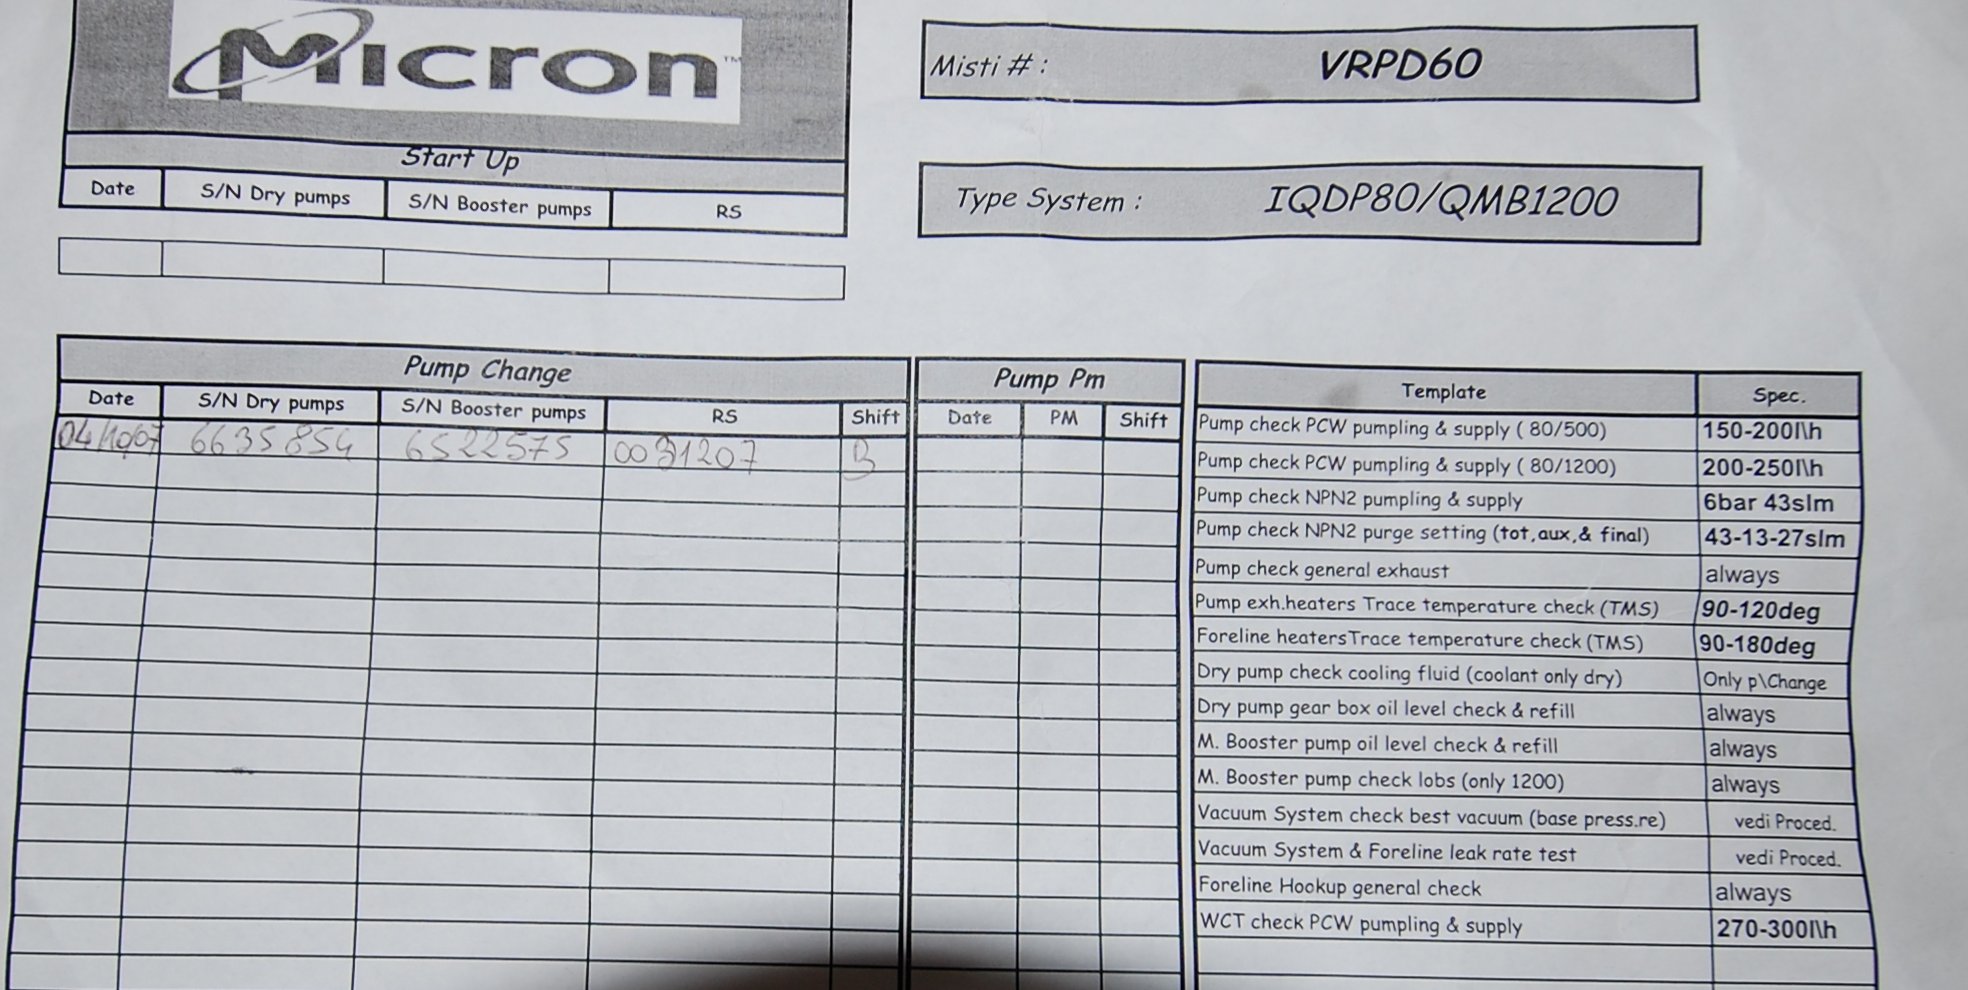 Micron™
Misti # : VRPD60
Start Up
Date S/N Dry pumps S/N Booster pumps RS
Type System : IQDP80/QMB1200
Pump Change
Date S/N Dry pumps S/N Booster pumps RS Shift
04/10/07 6635854 6522575 0031207 B
Pump Pm
Date PM Shift
Template Spec.
Pump check PCW pumpling & supply ( 80/500) 150-200l\h
Pump check PCW pumpling & supply ( 80/1200) 200-250l\h
Pump check NPN2 pumpling & supply 6bar 43slm
Pump check NPN2 purge setting (tot,aux,& final) 43-13-27slm
Pump check general exhaust always
Pump exh.heaters Trace temperature check (TMS) 90-120deg
Foreline heatersTrace temperature check (TMS) 90-180deg
Dry pump check cooling fluid (coolant only dry) Only p\Change
Dry pump gear box oil level check & refill always
M. Booster pump oil level check & refill always
M. Booster pump check lobs (only 1200) always
Vacuum System check best vacuum (base press.re) vedi Proced.
Vacuum System & Foreline leak rate test vedi Proced.
Foreline Hookup general check always
WCT check PCW pumpling & supply 270-300l\h